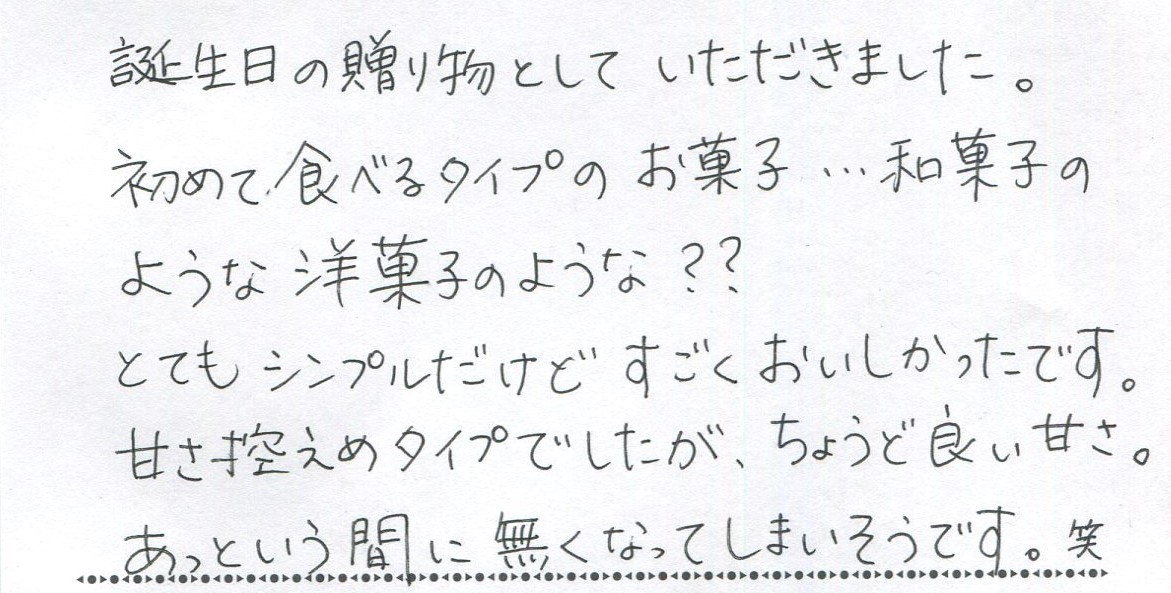 誕生日の贈り物として いただきました。
初めて食べるタイプの お菓子…和菓子の
ような 洋菓子のような??
とても シンプルだけど すごく おいしかったです。
甘さ控えめタイプでしたが、ちょうど良い甘さ。
あっという間に 無くなってしまいそうです。笑